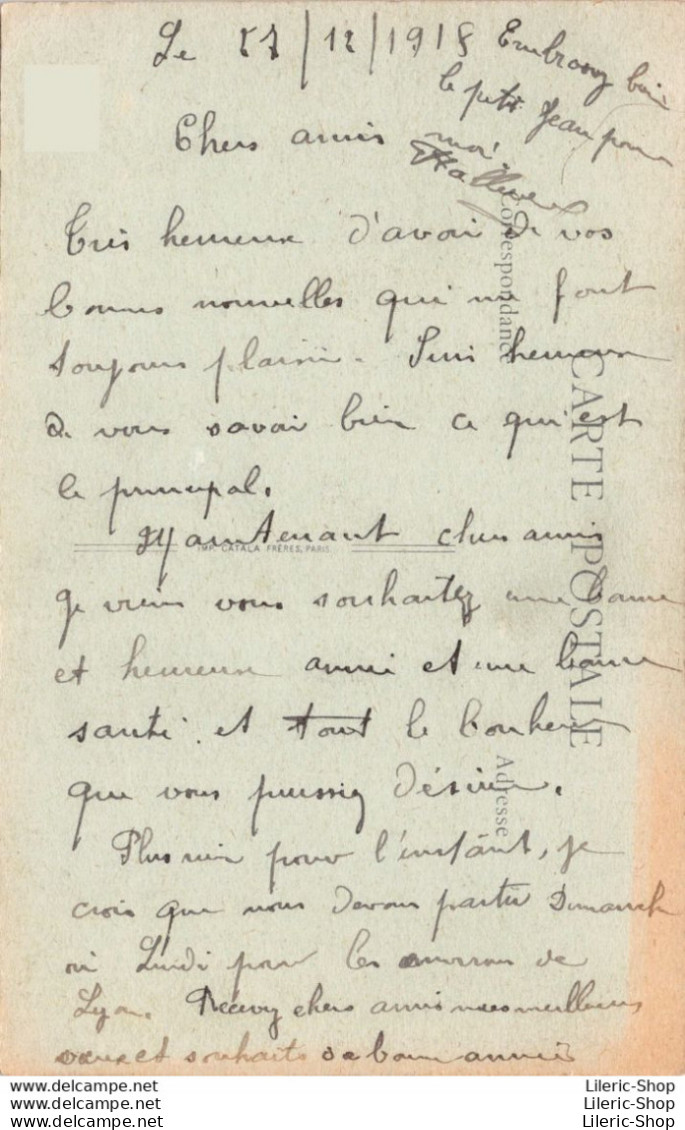 Le 27/12/1918 Embrassez bien
le petit Jean pour
moi
Chers amis
Très heureux d'avoir de vos
bonnes nouvelles qui me font
toujours plaisir. Suis heureux
de vous savoir bien ce qui est
le principal.
Maintenant chers amis
je viens vous souhaitez une bonne
et heureuse année et une bonne
santé. et tout le bonheur
que vous puissiez désirer.
Plus rien pour l'instant, je
crois que nous devons partir Dimanche
ou Lundi pour les environs de
Lyon. Recevez chers amis mes meilleurs
vœux et souhaits de bonne année
Correspondance
CARTE POSTALE
Adresse
IMP. CATALA FRÈRES, PARIS
Lileric-Shop
Lileric-Shop
Lileric-Shop
Lileric-shop.net
Lileric-shop.net
Lileric-shop.net